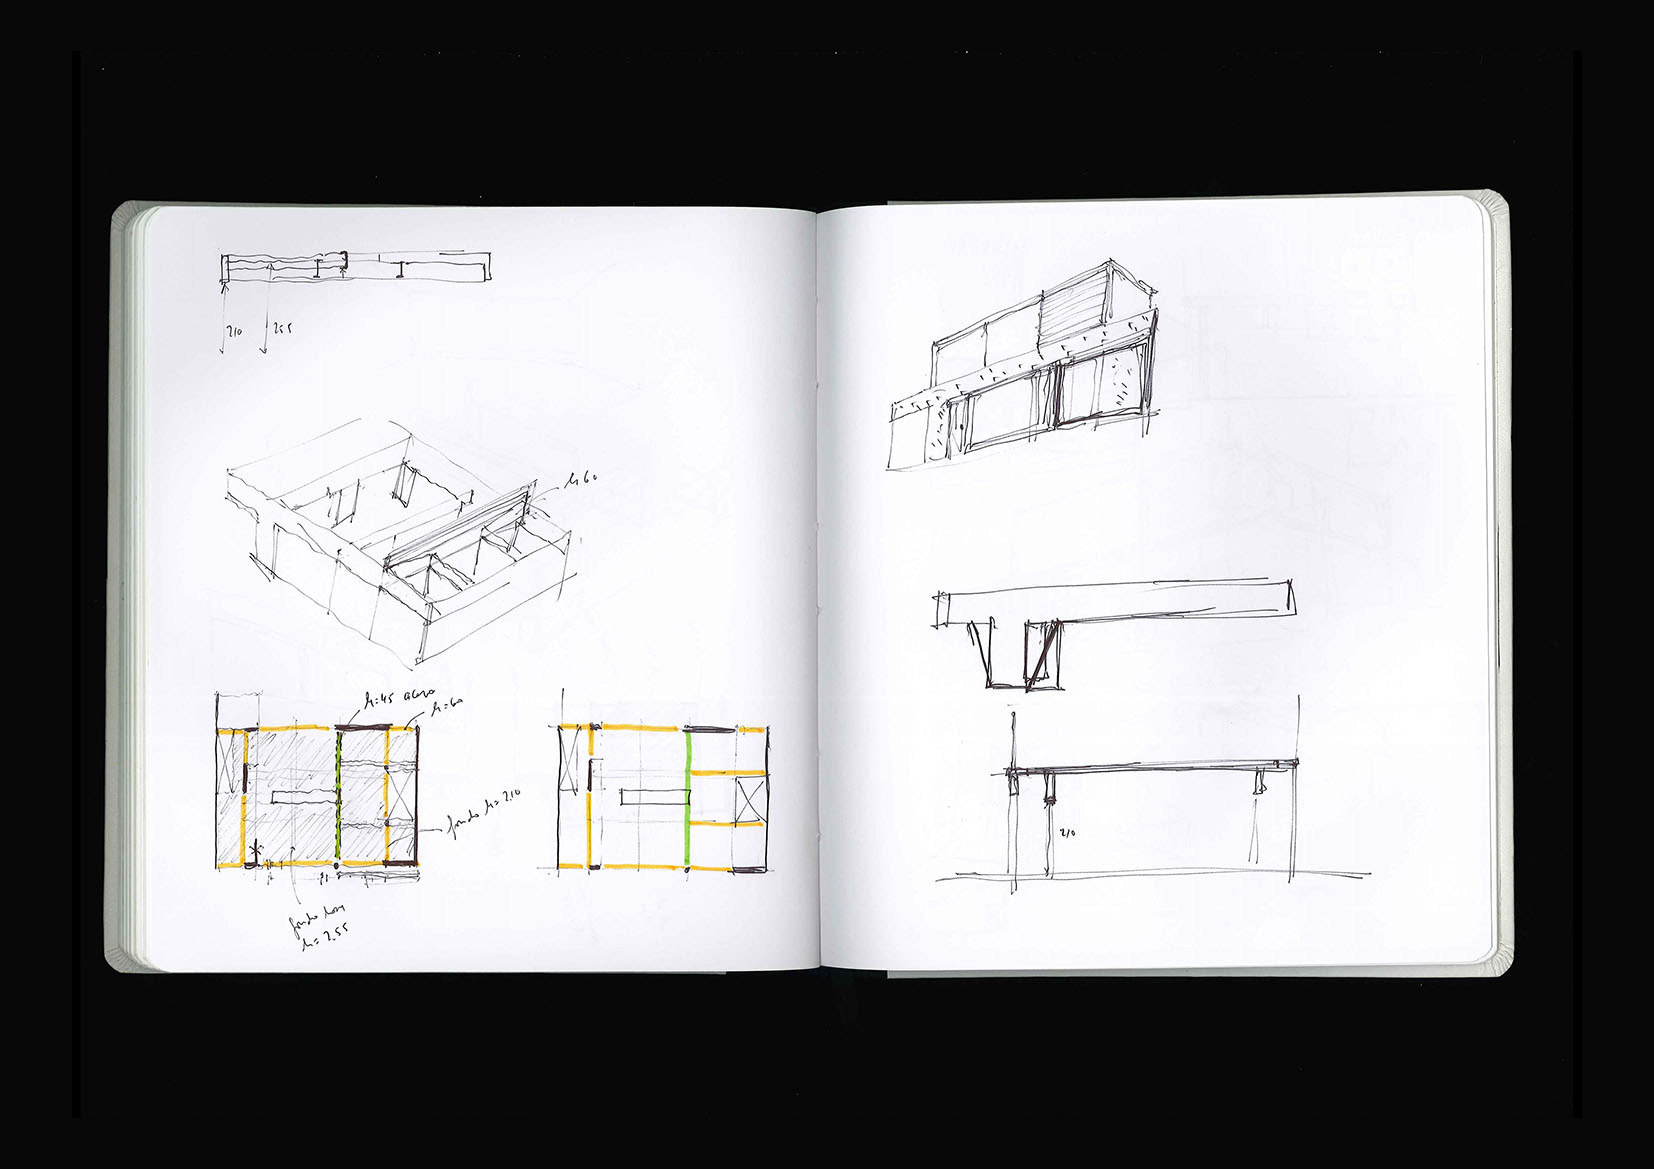 210
255
h60
h=45 acero
h=60
fondo h=210
fondo losa
h=2.55
210